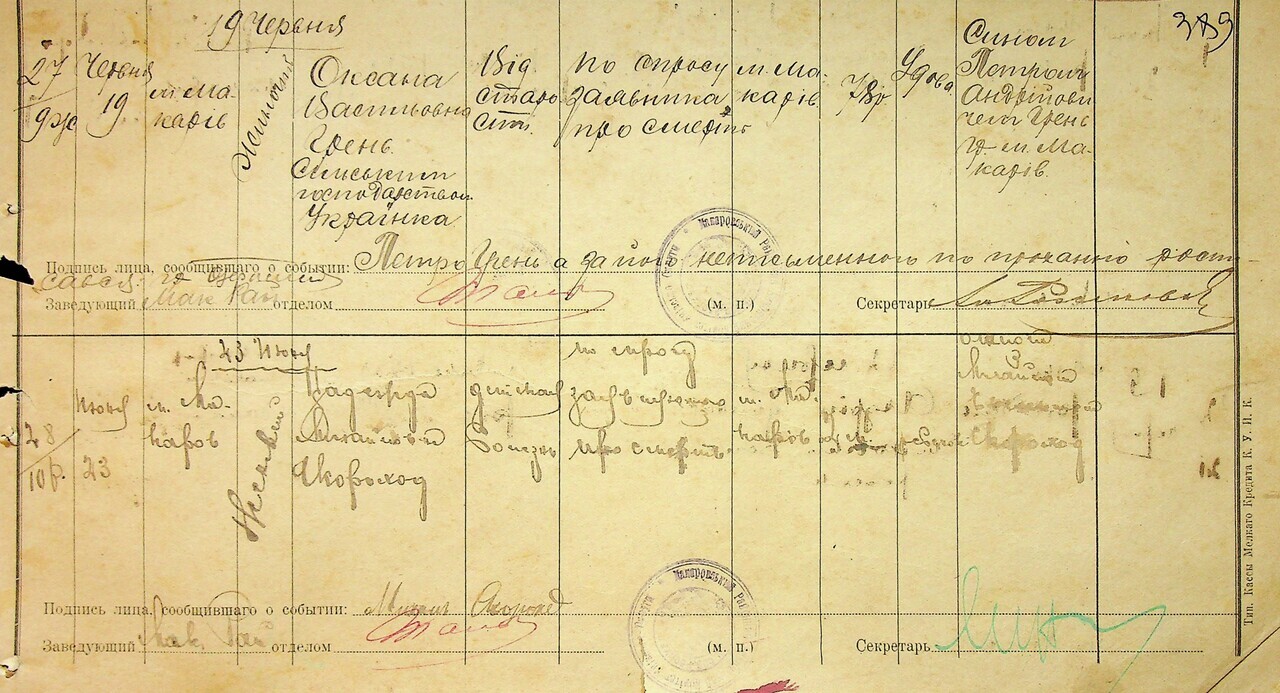 19 Червня
389
27/9ж
Червня 19
м. Макарів
Жіночия
Оксана
Васильовна
Грень.
Сільським
господарством.
Українка
Від
старо
сти.
по опросу
заявника
про смерть
м. Ма
карів.
78р
Удова.
Сином
Петром
Андрійови
чем Грень
м. Ма
карів.
Подпись лица, сообщившаго о событии: Петро Грень а за його неписьменного по проханню роспи
сався
Заведующий Мак Раг отделом
(м. п.)
Секретарь
23 Июня
28/10р.
Июня
23
м. Ма-
каров
Женский
Надежда
Михайловна
Скороход
детская
болезнь
по опросу
заявителя
про смерть
м. Ма-
каров
Скороход
Подпись лица, сообщившаго о событии: Михаил Скороход
Заведующий Мак. Раг отделом
(м. п.)
Секретарь
Тип. Кассы Мелкаго Кредита К. У. Н. К.